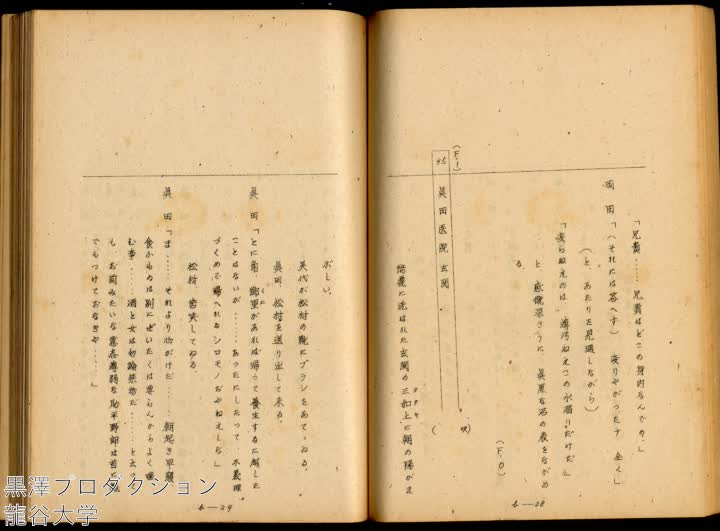 「兄貴……兄貴はどこの身内なんでの」
岡田「(それには答へず) 変りやがつたナ 全く」
(と、あたりを見廻しながら)
「変らねえのは 薄汚ねえこの水溜りだけだ」
と、感慨深さうに 真黒な沼の表をながめ
る。
(F・O)
(F・I)
35 眞田医院 玄関
綺麗に洗はれた玄関の三和土に朝の陽がま
タタキ
6—28
ぶしい。
美代が松村の靴にブラシをあてゝゐる。
眞田、松村を送り出して来る。
眞田「とに角、郷里があれば帰つて養生するに越した
くに
ことはないが……あつたにしたつて、不義理
づくめで帰へれるシロモノぢやねえしな」
松村、苦笑してゐる。
眞田「ま……それより心がけだ……朝起き早寝
食ふものは別にぜいたくは要らんからよく噛
む事……酒と女は勿論禁物だ……と云つて
も お前みたいな意志薄弱な助平野郎は首に
でもつけておなきや……」
6—29
黒澤プロダクション
龍谷大学